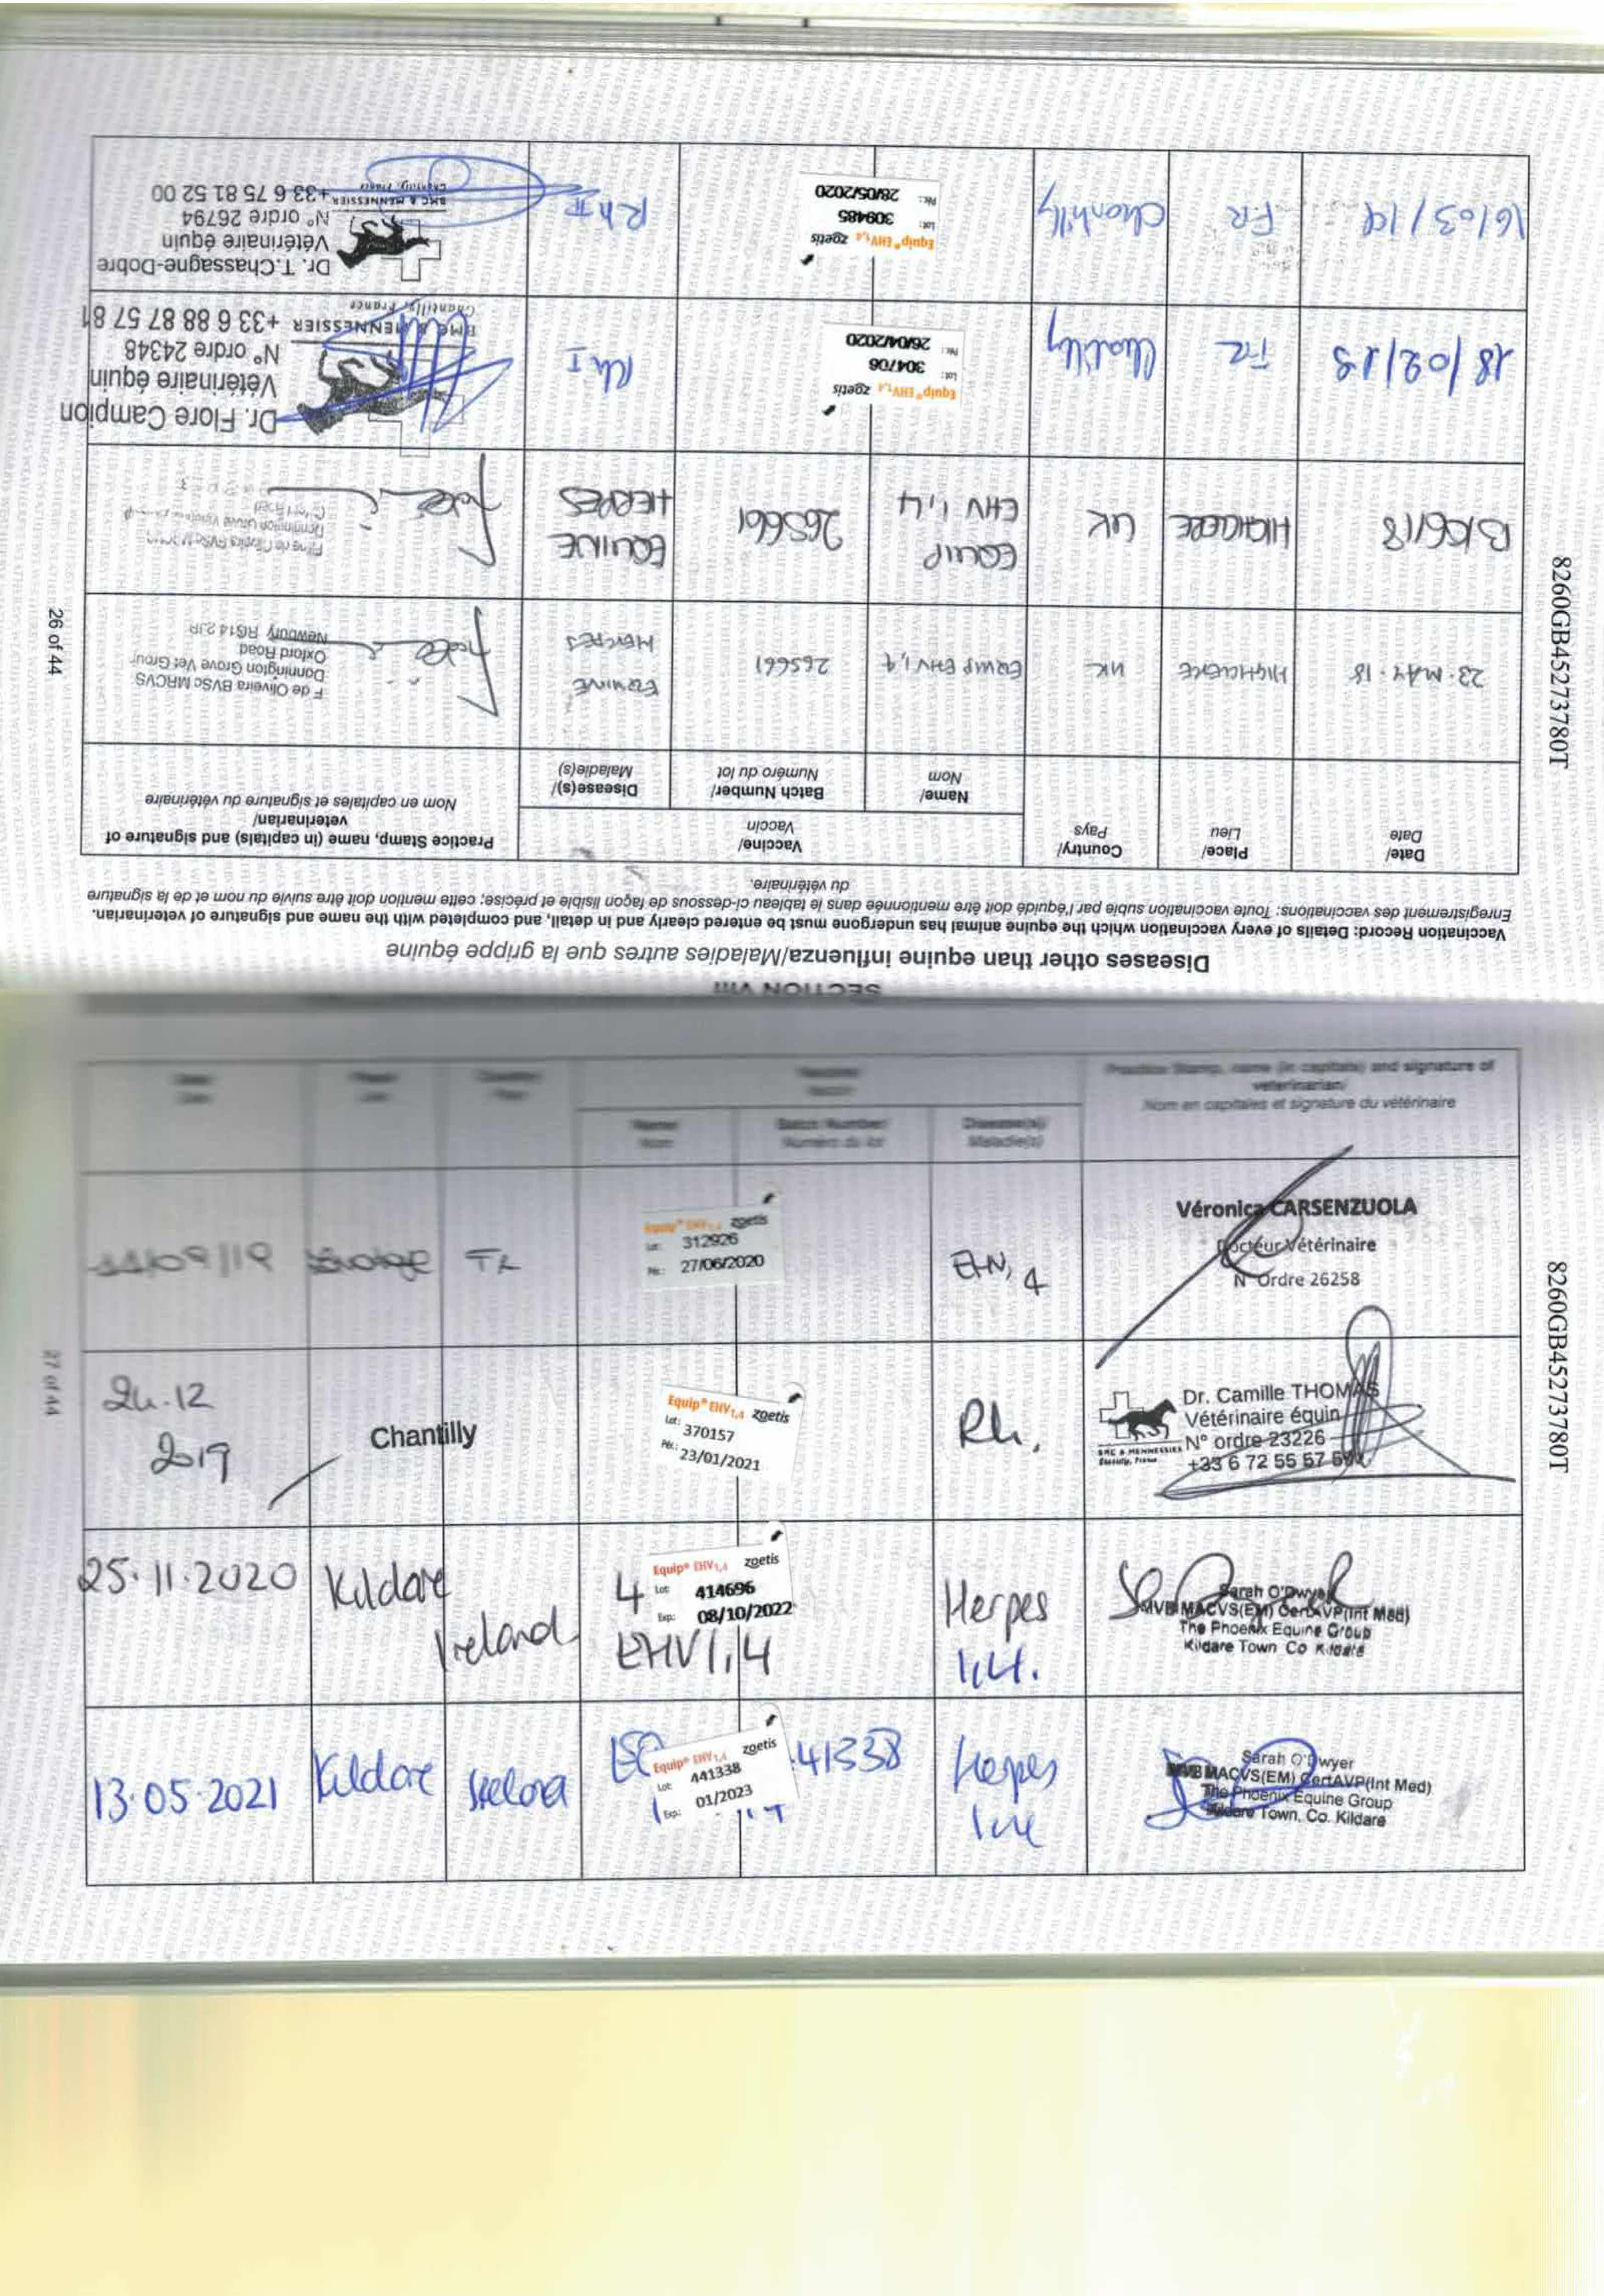 SECTION VIII
Diseases other than equine influenza/Maladies autres que la grippe équine
Vaccination Record: Details of every vaccination which the equine animal has undergone must be entered clearly and in detail, and completed with the name and signature of veterinarian.
Enregistrement des vaccinations: Toute vaccination subie par l'équidé doit être mentionnée dans le tableau ci-dessous de façon lisible et précise; cette mention doit être suivie du nom et de la signature
du vétérinaire.
Date/
Date
Place/
Lieu
Country/
Pays
Vaccine/
Vaccin
Name/
Nom
Batch Number/
Numéro du lot
Disease(s)/
Maladie(s)
Practice Stamp, name (in capitals) and signature of
veterinarian/
Nom en capitales et signature du vétérinaire
23 · MAY · 18
HIGHCLERE
UK
EQUIP EHV 1,4
265661
EQUINE
HERPES
F de Oliveira BVSc MRCVS
Donnington Grove Vet Group
Oxford Road
Newbury RG14 2JR
13/06/18
HIGHCLERE
UK
EQUIP
EHV 1,4
265661
EQUINE
HERPES
Donnington Grove
18/02/19
FR
Chantilly
Equip® EHV1,4 zoetis
Lot: 304706
Pér.: 26/04/2020
Rh I
Dr. Flore Campion
Vétérinaire équin
N° ordre 24348
BMC & MENNESSIER +33 6 88 87 57 81
Chantilly, France
16/03/19
FR
Chantilly
Equip® EHV1,4 zoetis
Lot: 309485
Pér.: 28/05/2020
Rh II
Dr. T.Chassagne-Dobre
Vétérinaire équin
N° ordre 26794
BMC & MENNESSIER +33 6 75 81 52 00
Chantilly, France
8260GB45273780T
26 of 44
Practice Stamp, name (in capitals) and signature of
veterinarian/
Nom en capitales et signature du vétérinaire
Name/
Nom
Batch Number/
Numéro du lot
Disease(s)/
Maladie(s)
/09/19
FR
Equip® EHV1,4 zoetis
Lot: 312926
Pér.: 27/06/2020
EHV1,4
Véronica CARSENZUOLA
Docteur Vétérinaire
N° Ordre 26258
24.12
2019
Chantilly
Equip® EHV1,4 zoetis
Lot: 370157
Pér.: 23/01/2021
Rh.
Dr. Camille THOMAS
Vétérinaire équin
N° ordre 23226
BMC & MENNESSIER
Chantilly, France
+33 6 72 55 57
25.11.2020
Kildare
Ireland
Equip® EHV1,4 zoetis
4
Lot: 414696
Exp: 08/10/2022
EHV1,4
Herpes
1,4.
Sarah O'Dwyer
MVB MACVS(EM) CertAVP(Int Med)
The Phoenix Equine Group
Kildare Town Co Kildare
13.05.2021
Kildare
Ireland
Equip® EHV1,4 zoetis
Lot: 441338
Exp: 01/2023
41338
Herpes
1,4
Sarah O'Dwyer
MVB MACVS(EM) CertAVP(Int Med)
The Phoenix Equine Group
Kildare Town, Co. Kildare
8260GB45273780T
27 of 44